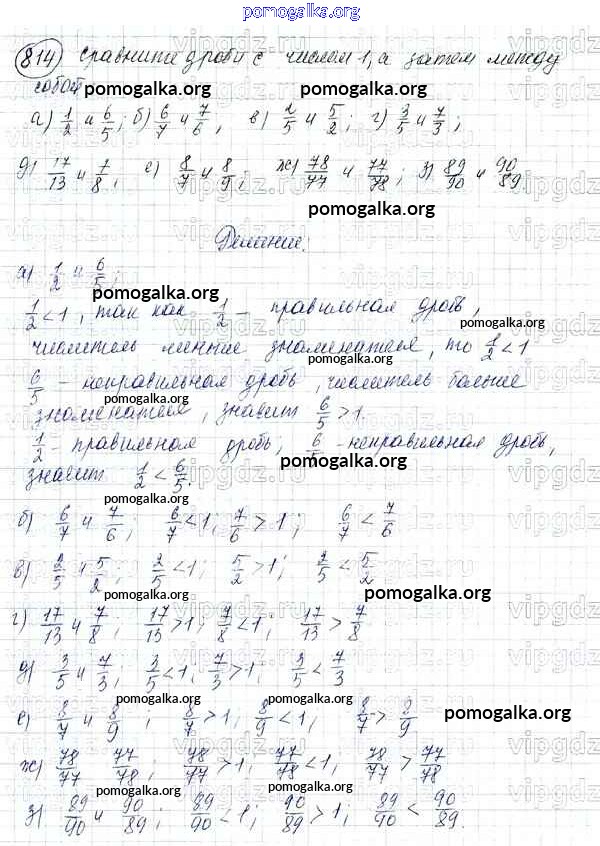 pomogalka.org
814) Сравните дроби с числом 1, а затем между
собой
pomogalka.org pomogalka.org
а) 1/2 и 6/5; б) 6/7 и 7/6, в) 2/5 и 5/2; г) 3/5 и 7/3;
д) 17/13 и 7/8, е) 8/7 и 8/9, ж) 78/77 и 77/78; з) 89/90 и 90/89
pomogalka.org
Решение:
а) 1/2 и 6/5;
pomogalka.org
1/2 < 1, так как 1/2 - правильная дробь,
pomogalka.org
числитель меньше знаменателя, то 1/2 < 1
6/5 - неправильная дробь, числитель больше
pomogalka.org
знаменателя, значит 6/5 > 1.
1/2 - правильная дробь, 6/5 - неправильная дробь,
pomogalka.org
значит 1/2 < 6/5.
pomogalka.org
б) 6/7 и 7/6; 6/7 < 1; 7/6 > 1; 6/7 < 7/6
в) 2/5 и 5/2; 2/5 < 1; 5/2 > 1; 2/5 < 5/2
pomogalka.org
г) 17/13 и 7/8; 17/13 > 1; 7/8 < 1; 17/13 > 7/8
д) 3/5 и 7/3; 3/5 < 1; 7/3 > 1; 3/5 < 7/3
pomogalka.org pomogalka.org
е) 8/7 и 8/9; 8/7 > 1; 8/9 < 1; 8/7 > 8/9
pomogalka.org
pomogalka.org
ж) 78/77 77/78; 78/77 > 1; 77/78 < 1; 78/77 > 77/78
pomogalka.org pomogalka.org
з) 89/90 и 90/89; 89/90 < 1; 90/89 > 1; 89/90 < 90/89.